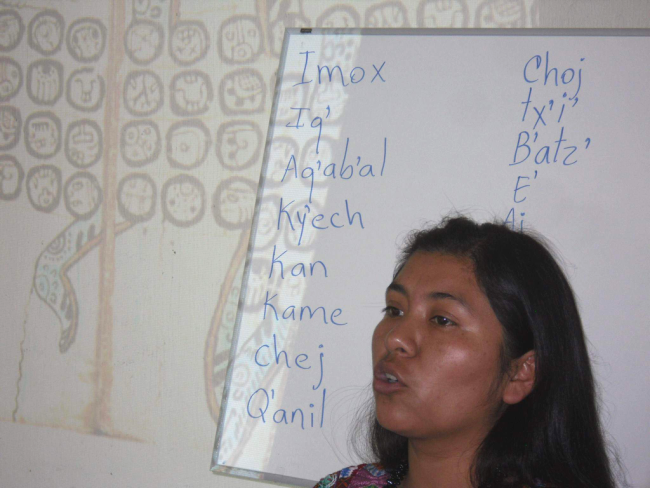 Imox
Iq'
Aq'ab'al
Ky'ech
Kan
Kame
Chej
Q'anil
Choj
tx'i'
B'atz'
E'
Aj